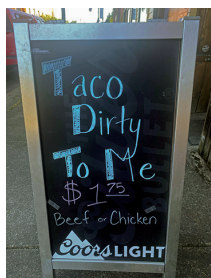 Taco
Dirty
To Me
$1.75
Beef or Chicken
Coors LIGHT